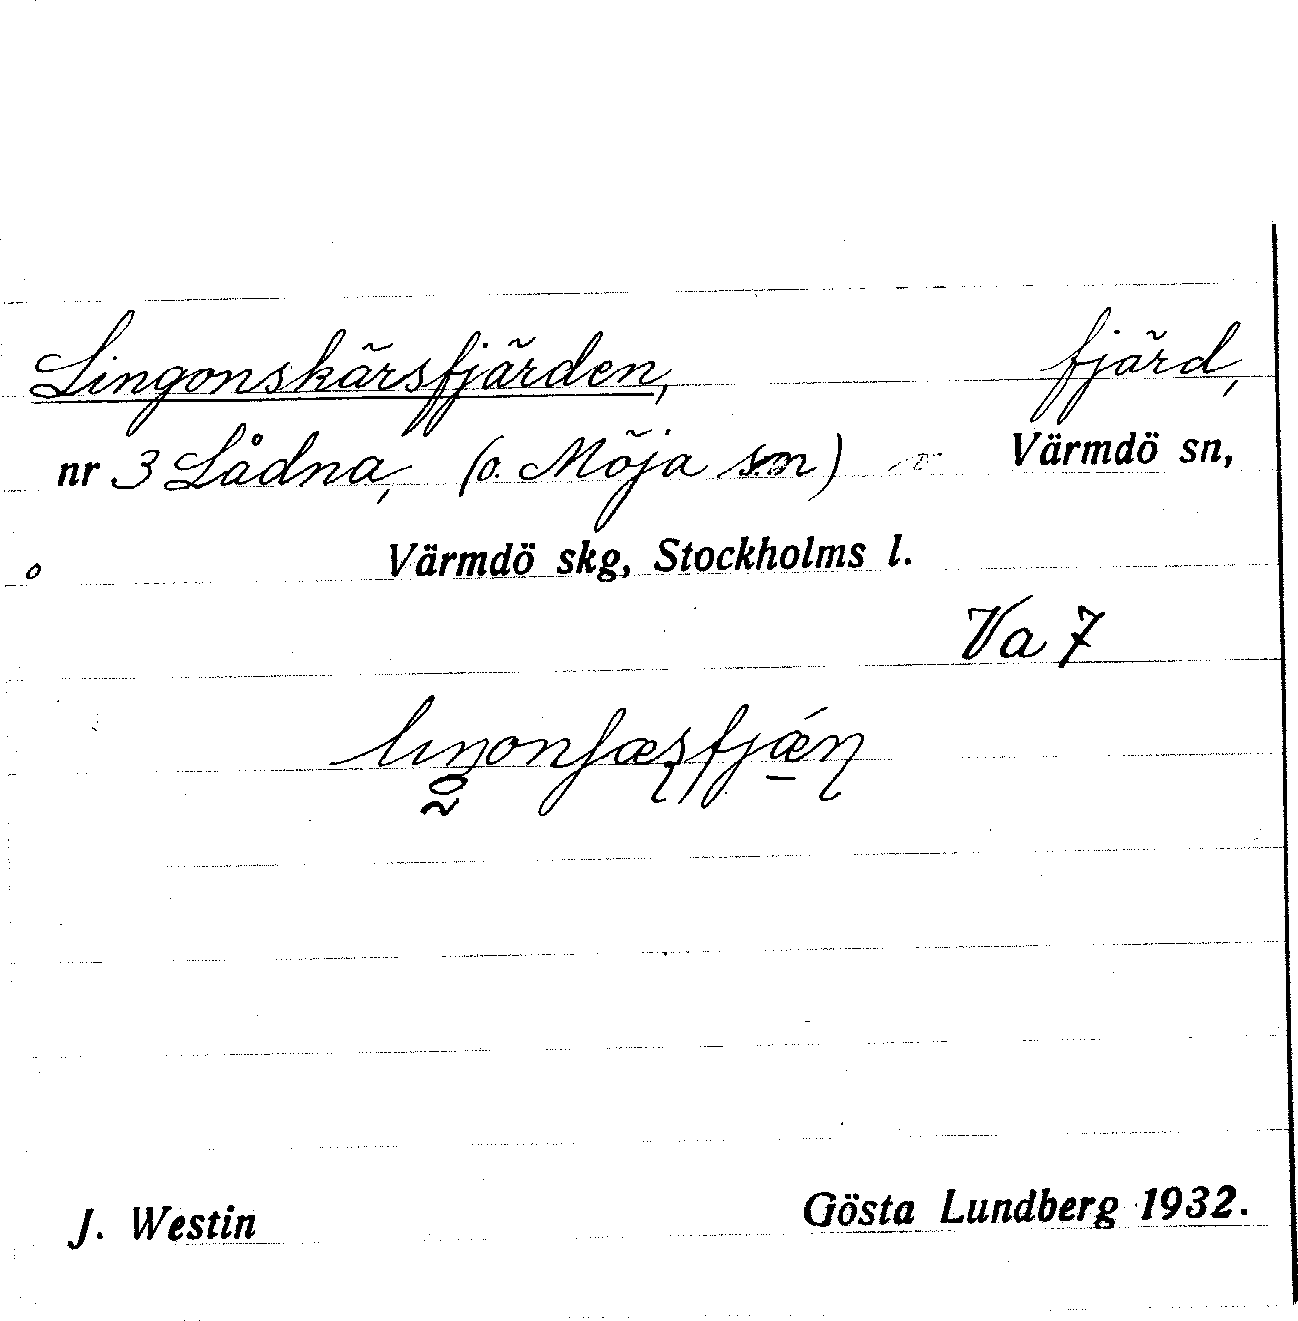 Lingonskärsfjärden, fjärd,
nr 3 Lådna, (o. Möja sn) Värmdö sn,
Värmdö skg, Stockholms l.
Va 7
J. Westin Gösta Lundberg 1932.